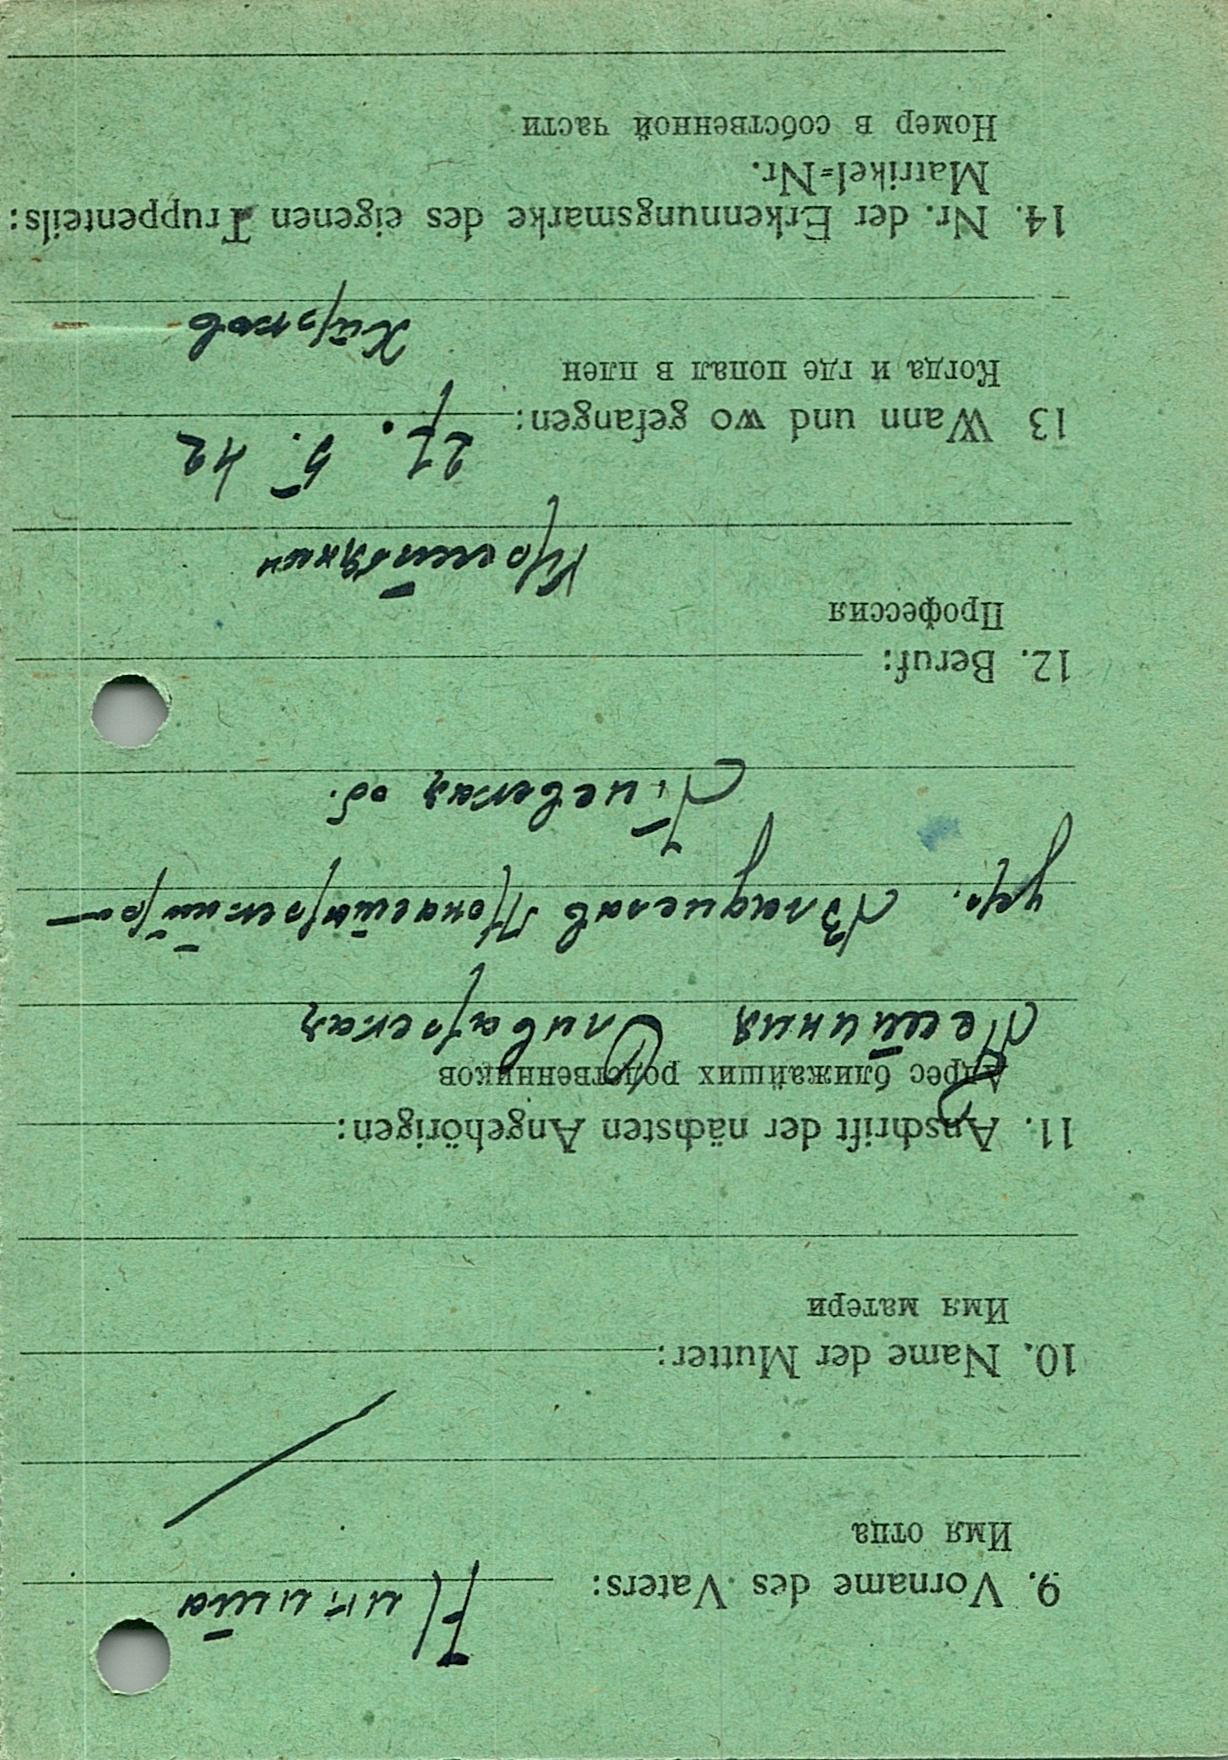 9. Vorname des Vaters:
Никита
Имя отца
10. Name der Mutter:
Имя матери
11. Anschrift der nächsten Angehörigen:
Адрес ближайших родственников
дер.
об.
12. Beruf:
Профессия
Крестьянин
27. 5. 42
13 Wann und wo gefangen:
Когда и где попал в плен
Харьков
14. Nr. der Erkennungsmarke des eigenen Truppenteils:
Matrikel=Nr.
Номер в собственной части